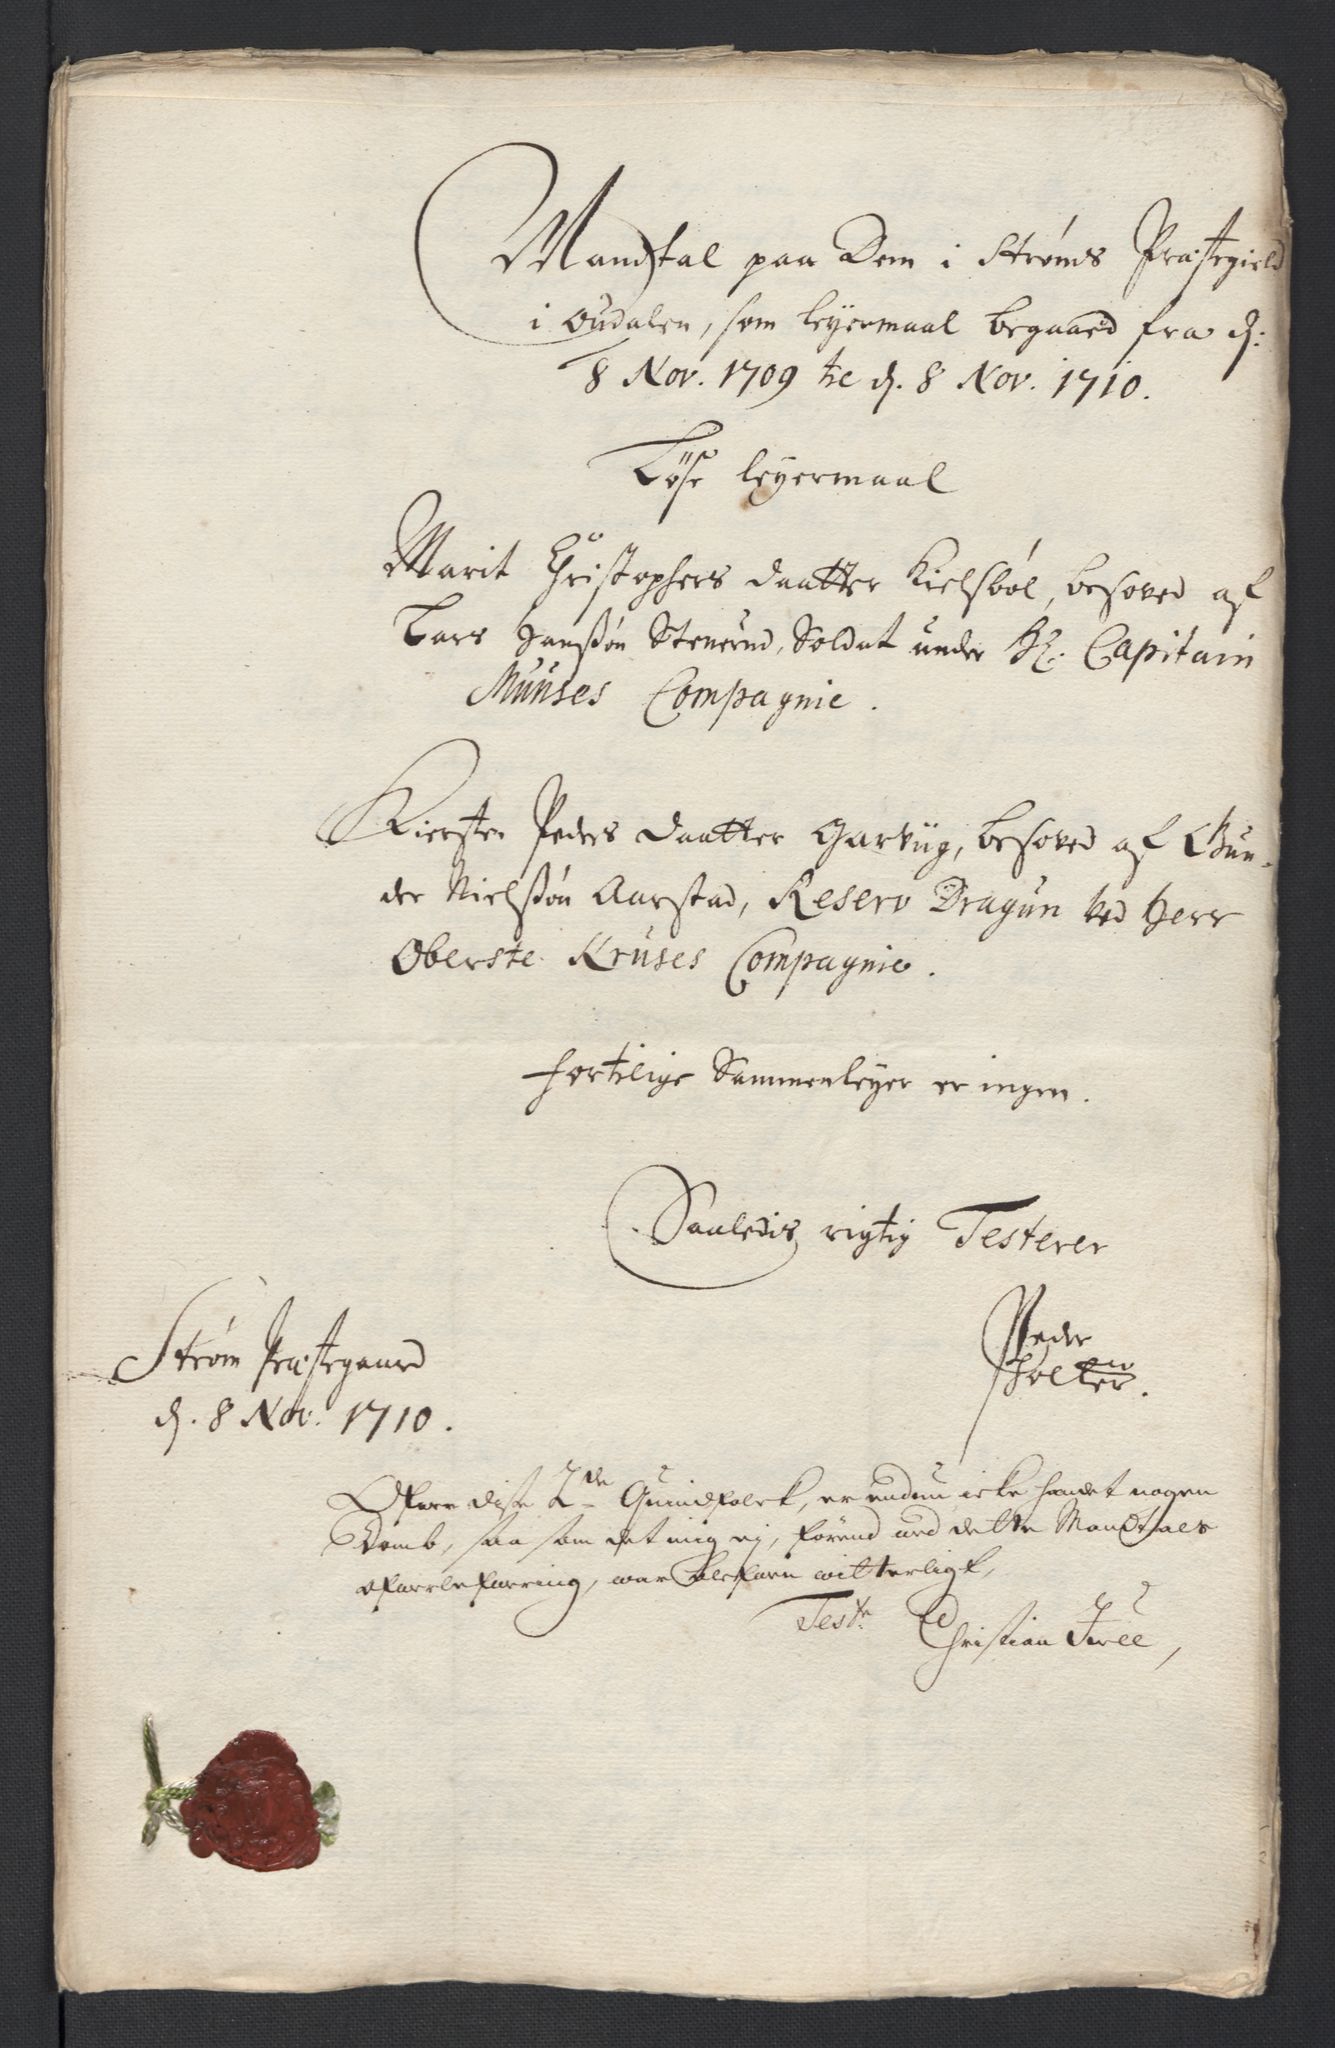 Mandtal paa Dem i Strøms Præstegield
i Oudalen, som leyermaal begaaed fra d:
8 Nov. 1709 til d. 8 Nov. 1710.
Løse leyermaal
Marit Christophers daatter Kielsböl, besoved af
Lars Hansßøn Stenerud, Soldat under Hr. Capitain
Munses Compagnie.
Kiersten Peders daatter Garviig, besoved af Gun-
der Nielsßøn Aarstad, Reserv Dragun ved Herr
Oberste Kruses Compagnie.
Fortilige Sammenleyer er ingen.
Saaledis rigtig Testerer
Peder
Holter.
Strøm Præstegaard
d. 8 Nov. 1710.
Ofver disse 2de Quindfolck, er endnu icke holdet nogen
Domb, saa som det mig ej, førend ved dette Mandtals
ofverlefvering, war witterligt,
Test. Christian